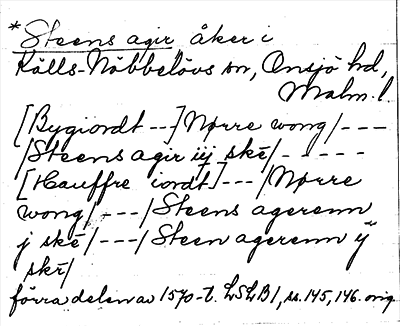 *Steens agir åker i
Källs-Nöbbelövs sn, Onsjö hd,
Malm. l.
[Bygiordt ---] Nørre wong/ ---
/Steens agir iij skē/ -----
[Hauffre iordt] ---/Nørre
wong/ ---/Steens agerenn
j skē/ ---/Steen agerenn ij
skē/
förra delen av 1570-t. LSLB1, ss. 145, 146. orig